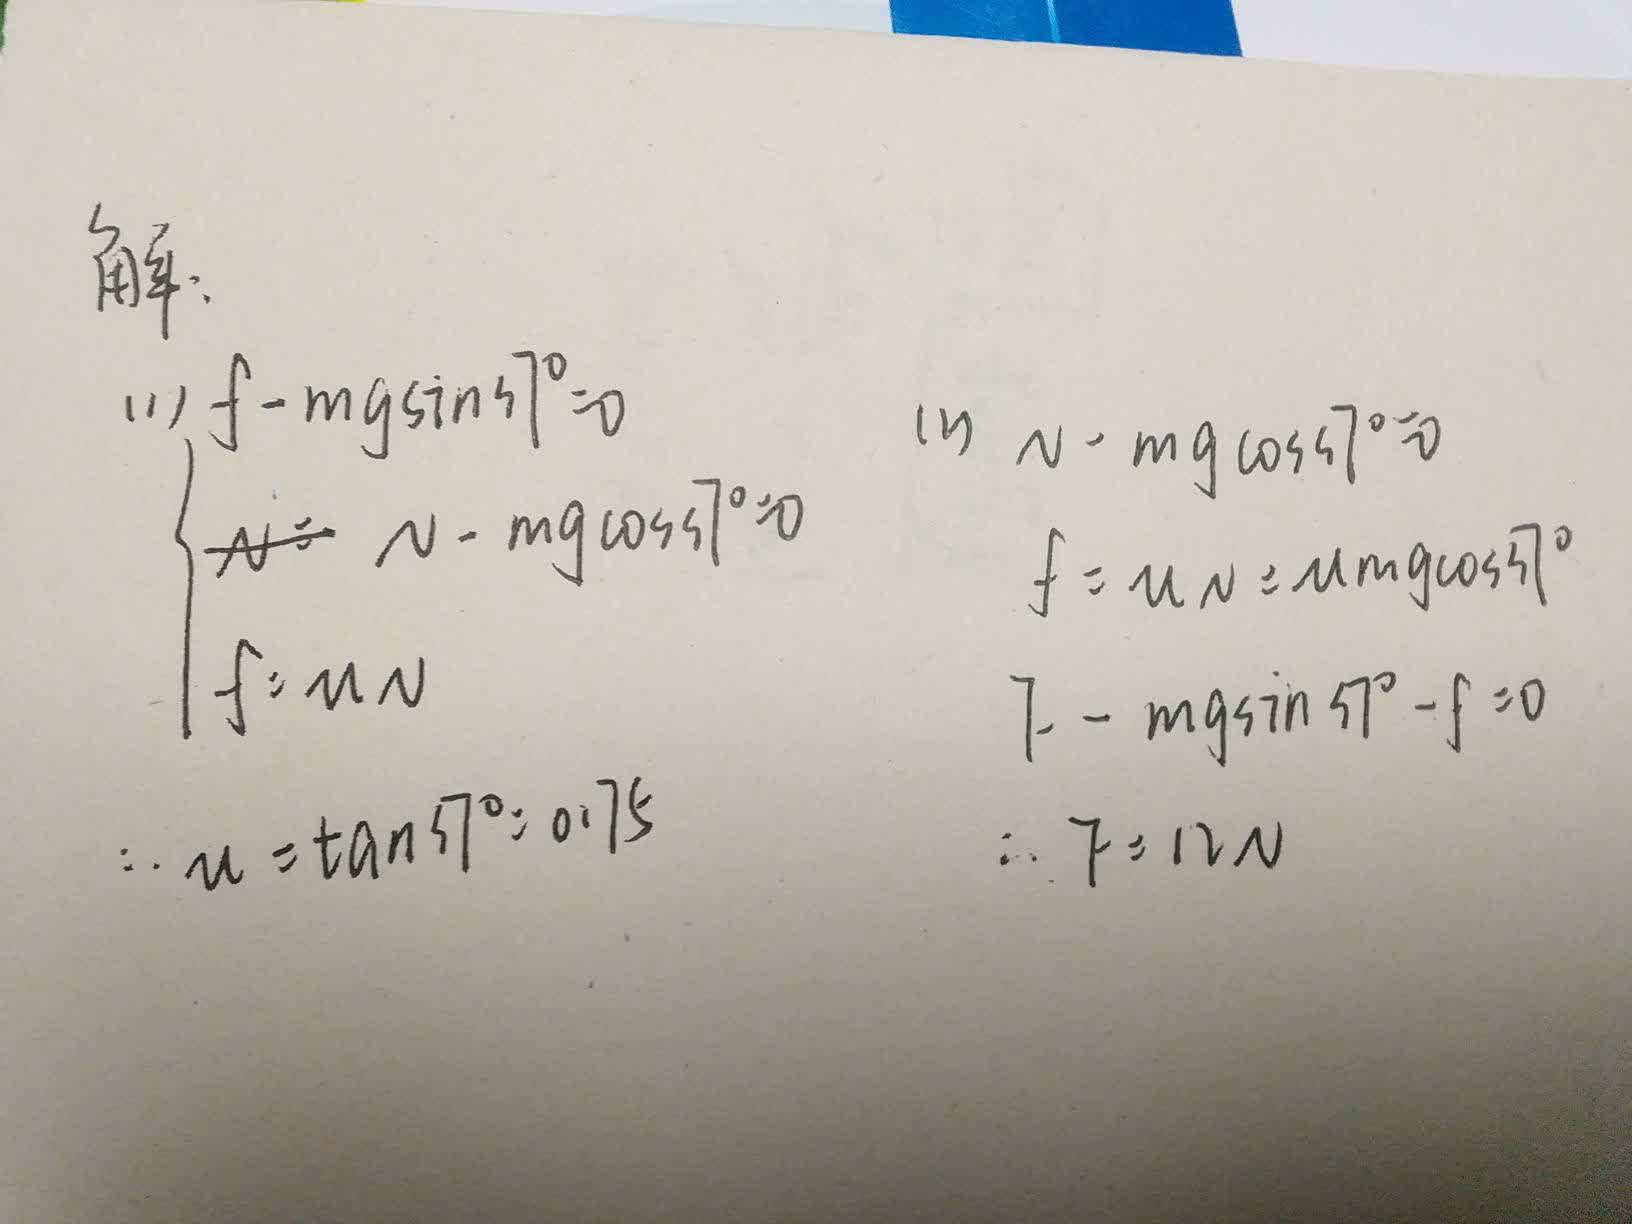 解:
(1) f-mgsin37°=0
N= N-mgcos37°=0
f=μN
∴ μ=tan37°=0.75
(2) N-mgcos37°=0
f=μN=μmgcos37°
F-mgsin37°-f=0
∴ F=12N